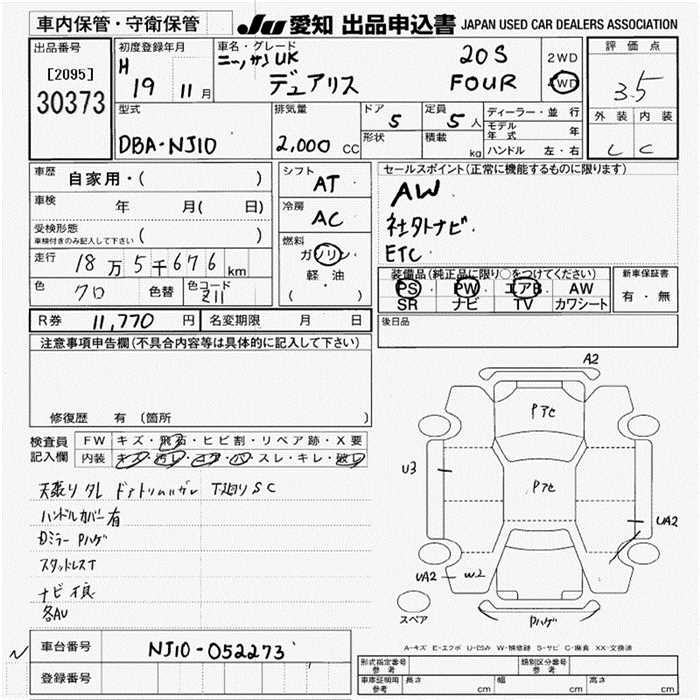 車内保管・守衛保管
JU 愛知 出品申込書 JAPAN USED CAR DEALERS ASSOCIATION
出品番号
[2095]
30373
初度登録年月
H 19 11 月
車名・グレード
ニッサンUK
デュアリス
20S
FOUR
2WD
4WD
評価点
3.5
外装 内装
C C
型式
DBA-NJ10
排気量
2,000 CC
ドア
5
形状
定員
5 人
積載
kg
ディーラー・並行
モデル年式 年
ハンドル 左・右
車歴
自家用・( )
車検
年 月( 日)
受検形態
車検付きのみ記入して下さい ( )
走行
18万5千676 km
色
クロ
色替
色コード
Z11
シフト
AT
冷房
AC
燃料
ガソリン
軽油
( ・ )
セールスポイント(正常に機能するものに限ります)
AW
社外ナビ
ETC
装備品(純正品に限り○をつけてください)
PS PW エアB AW
SR ナビ TV カワシート
新車保証書
有・無
R券 11,770 円 名変期限 月 日
後日品
注意事項申告欄(不具合内容等は具体的に記入して下さい)
修復歴 有 (箇所 )
検査員記入欄
FW キズ・飛石・ヒビ割・リペア跡・X要
内装 キズ・汚れ・コゲ・穴・スレ・キレ・破レ
天張りタレ ドアトリムハガレ 下廻りSC
ハンドルカバー有
Dミラー Pハゲ
スタッドレスT
ナビ不良
各AU
車台番号 NJ10-052273
登録番号
A2
Pアセ
Pアセ
U3
UA2
UA2
W2
Pハゲ
スペア
A-キズ E-エクボ U-凹み W-補修跡 S-サビ C-腐食 XX-交換済
形式指定番号 参考
類別区分番号 参考
車庫証明用 参考 長さ cm 幅 cm 高さ cm